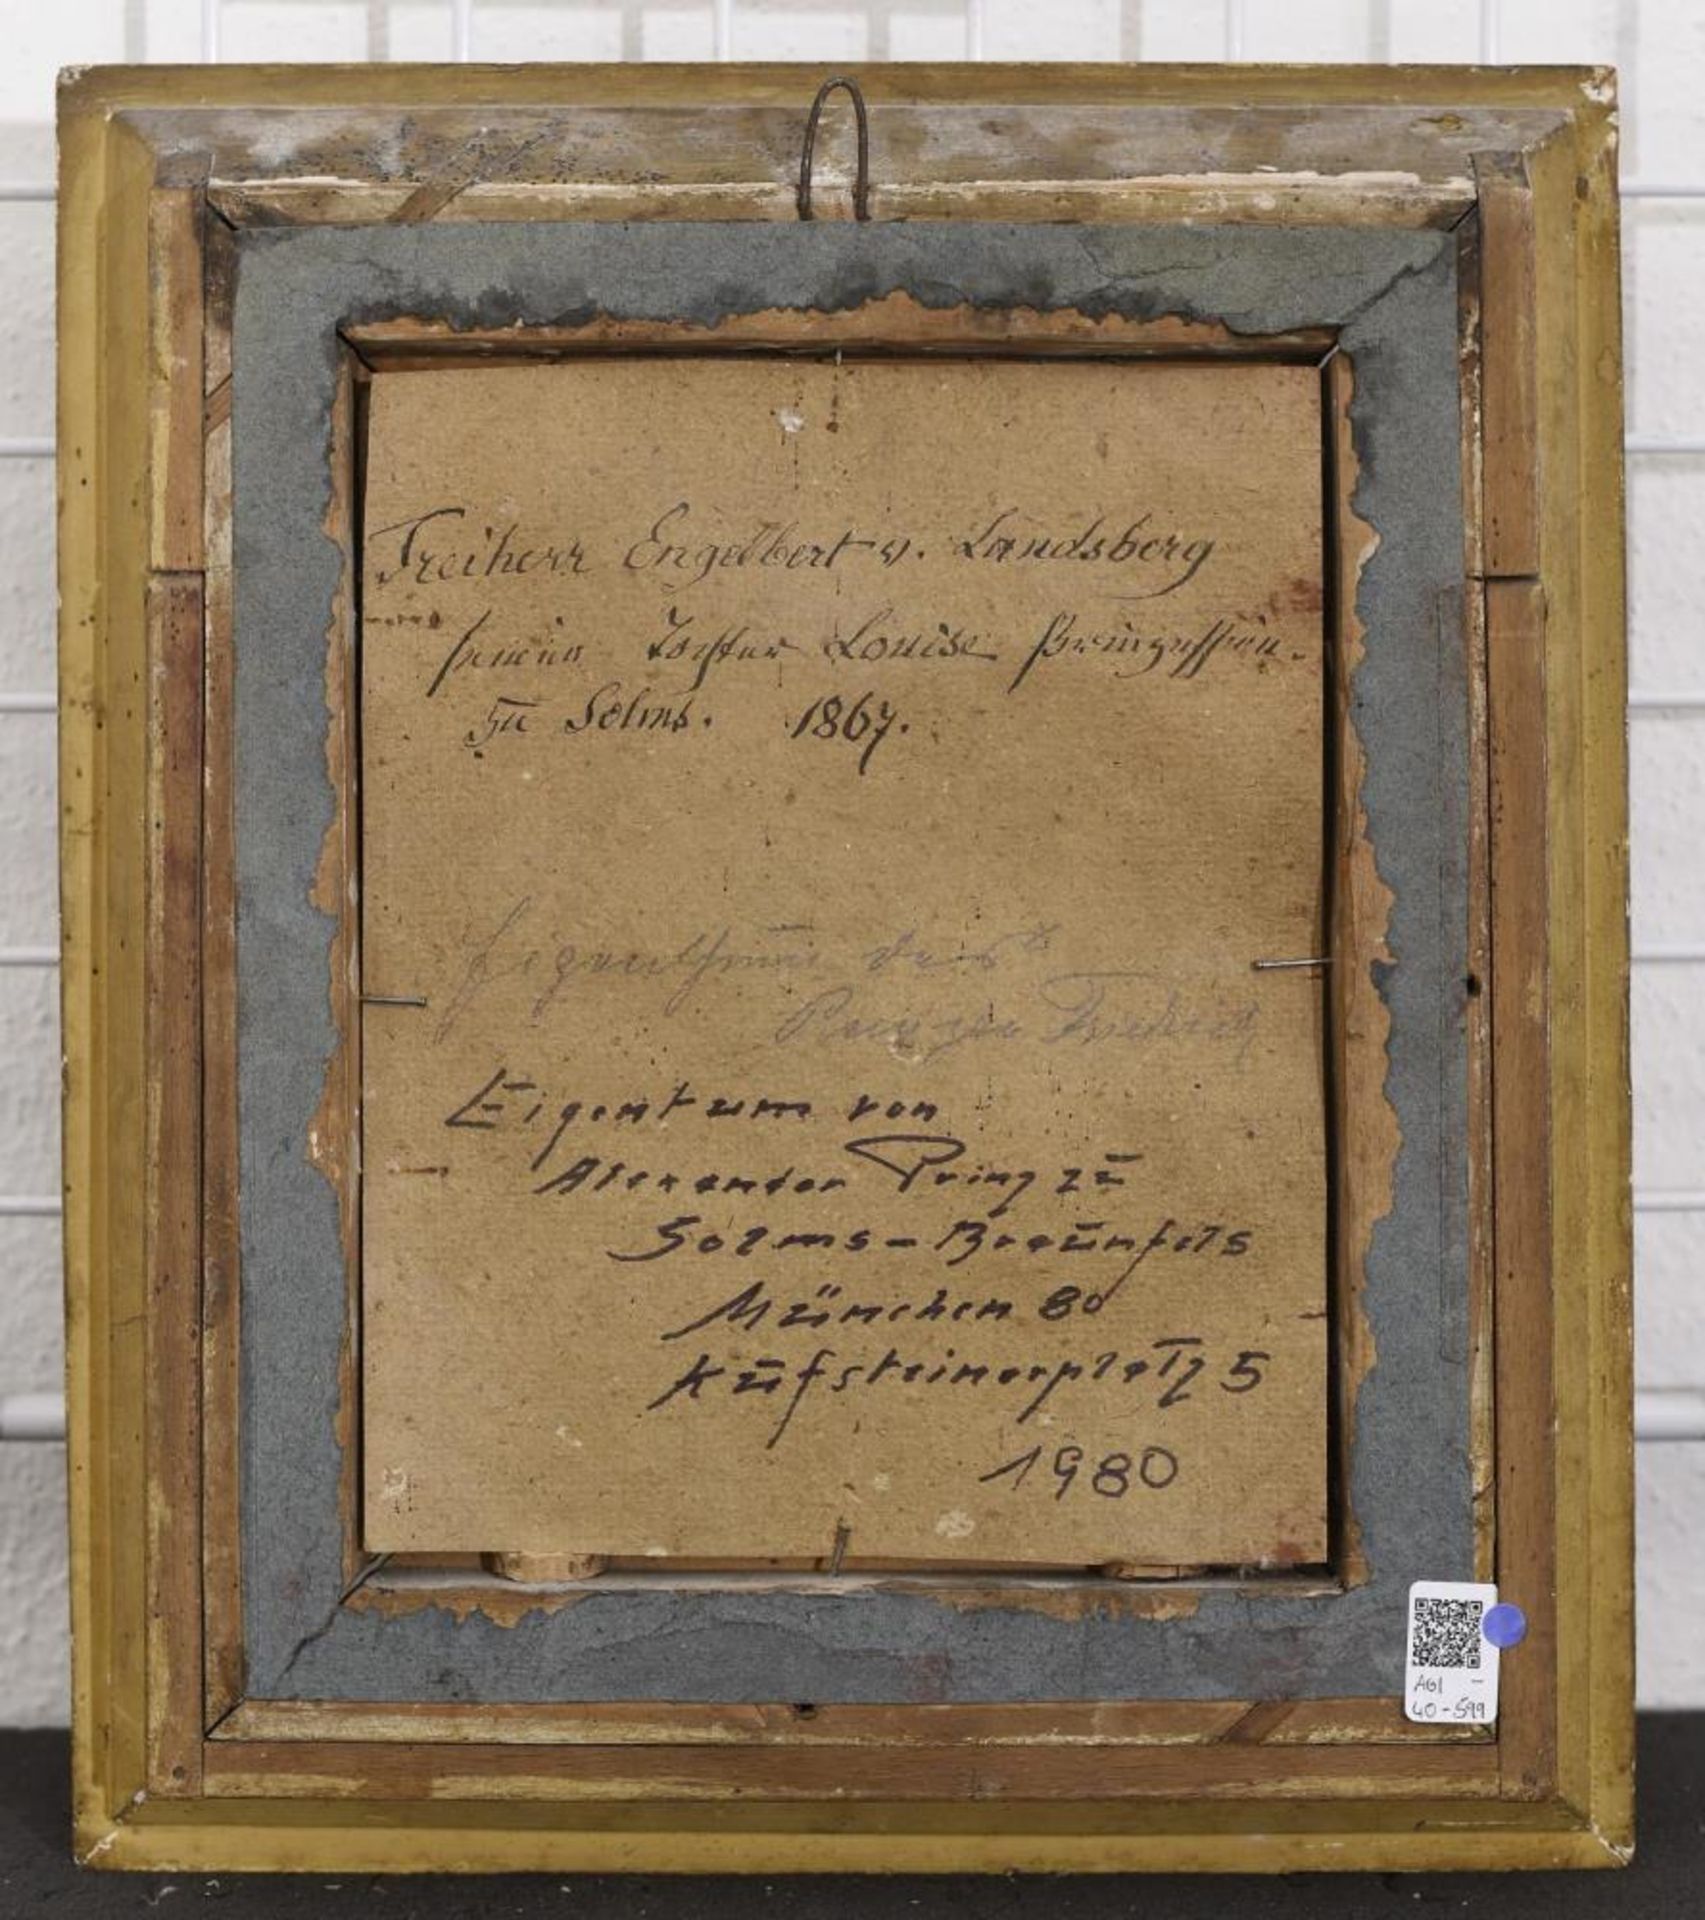 Freiherr Engelbert v. Landsberg
seiner Tochter Louise Prinzessin
zu Solms. 1867.
Eigenthum des
Prinzen Friedrich
Eigentum von
Alexander Prinz zu
Solms-Braunfels
München 80
Kufsteinerplatz 5
1980
AGI -
40-599